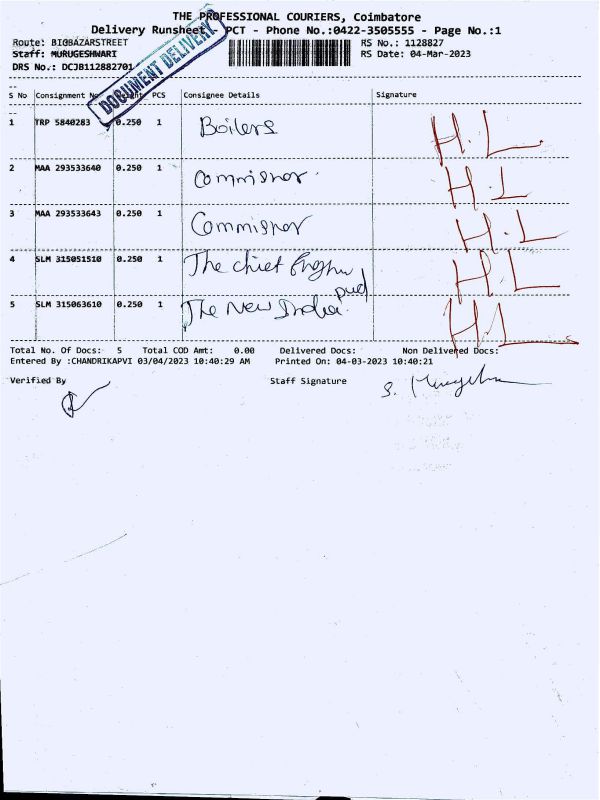 THE PROFESSIONAL COURIERS, Coimbatore
Delivery Runsheet - PCT - Phone No.:0422-3505555 - Page No.:1
Route: BIGBAZARSTREET RS No.: 1128827
Staff: MURUGESHWARI RS Date: 04-Mar-2023
DRS No.: DCJB112882701
DOCUMENT DELIVERY
S No Consignment No Weight PCS Consignee Details Signature
1 TRP 5840283 0.250 1 Boilers H.L
2 MAA 293533640 0.250 1 Commisnor H.L
3 MAA 293533643 0.250 1 Commisnor H.L
4 SLM 315051510 0.250 1 The chief H.L
pwd
5 SLM 315063610 0.250 1 The New India H.L
Total No. Of Docs: 5 Total COD Amt: 0.00 Delivered Docs: Non Delivered Docs:
Entered By :CHANDRIKAPVI 03/04/2023 10:40:29 AM Printed On: 04-03-2023 10:40:21
Verified By Staff Signature